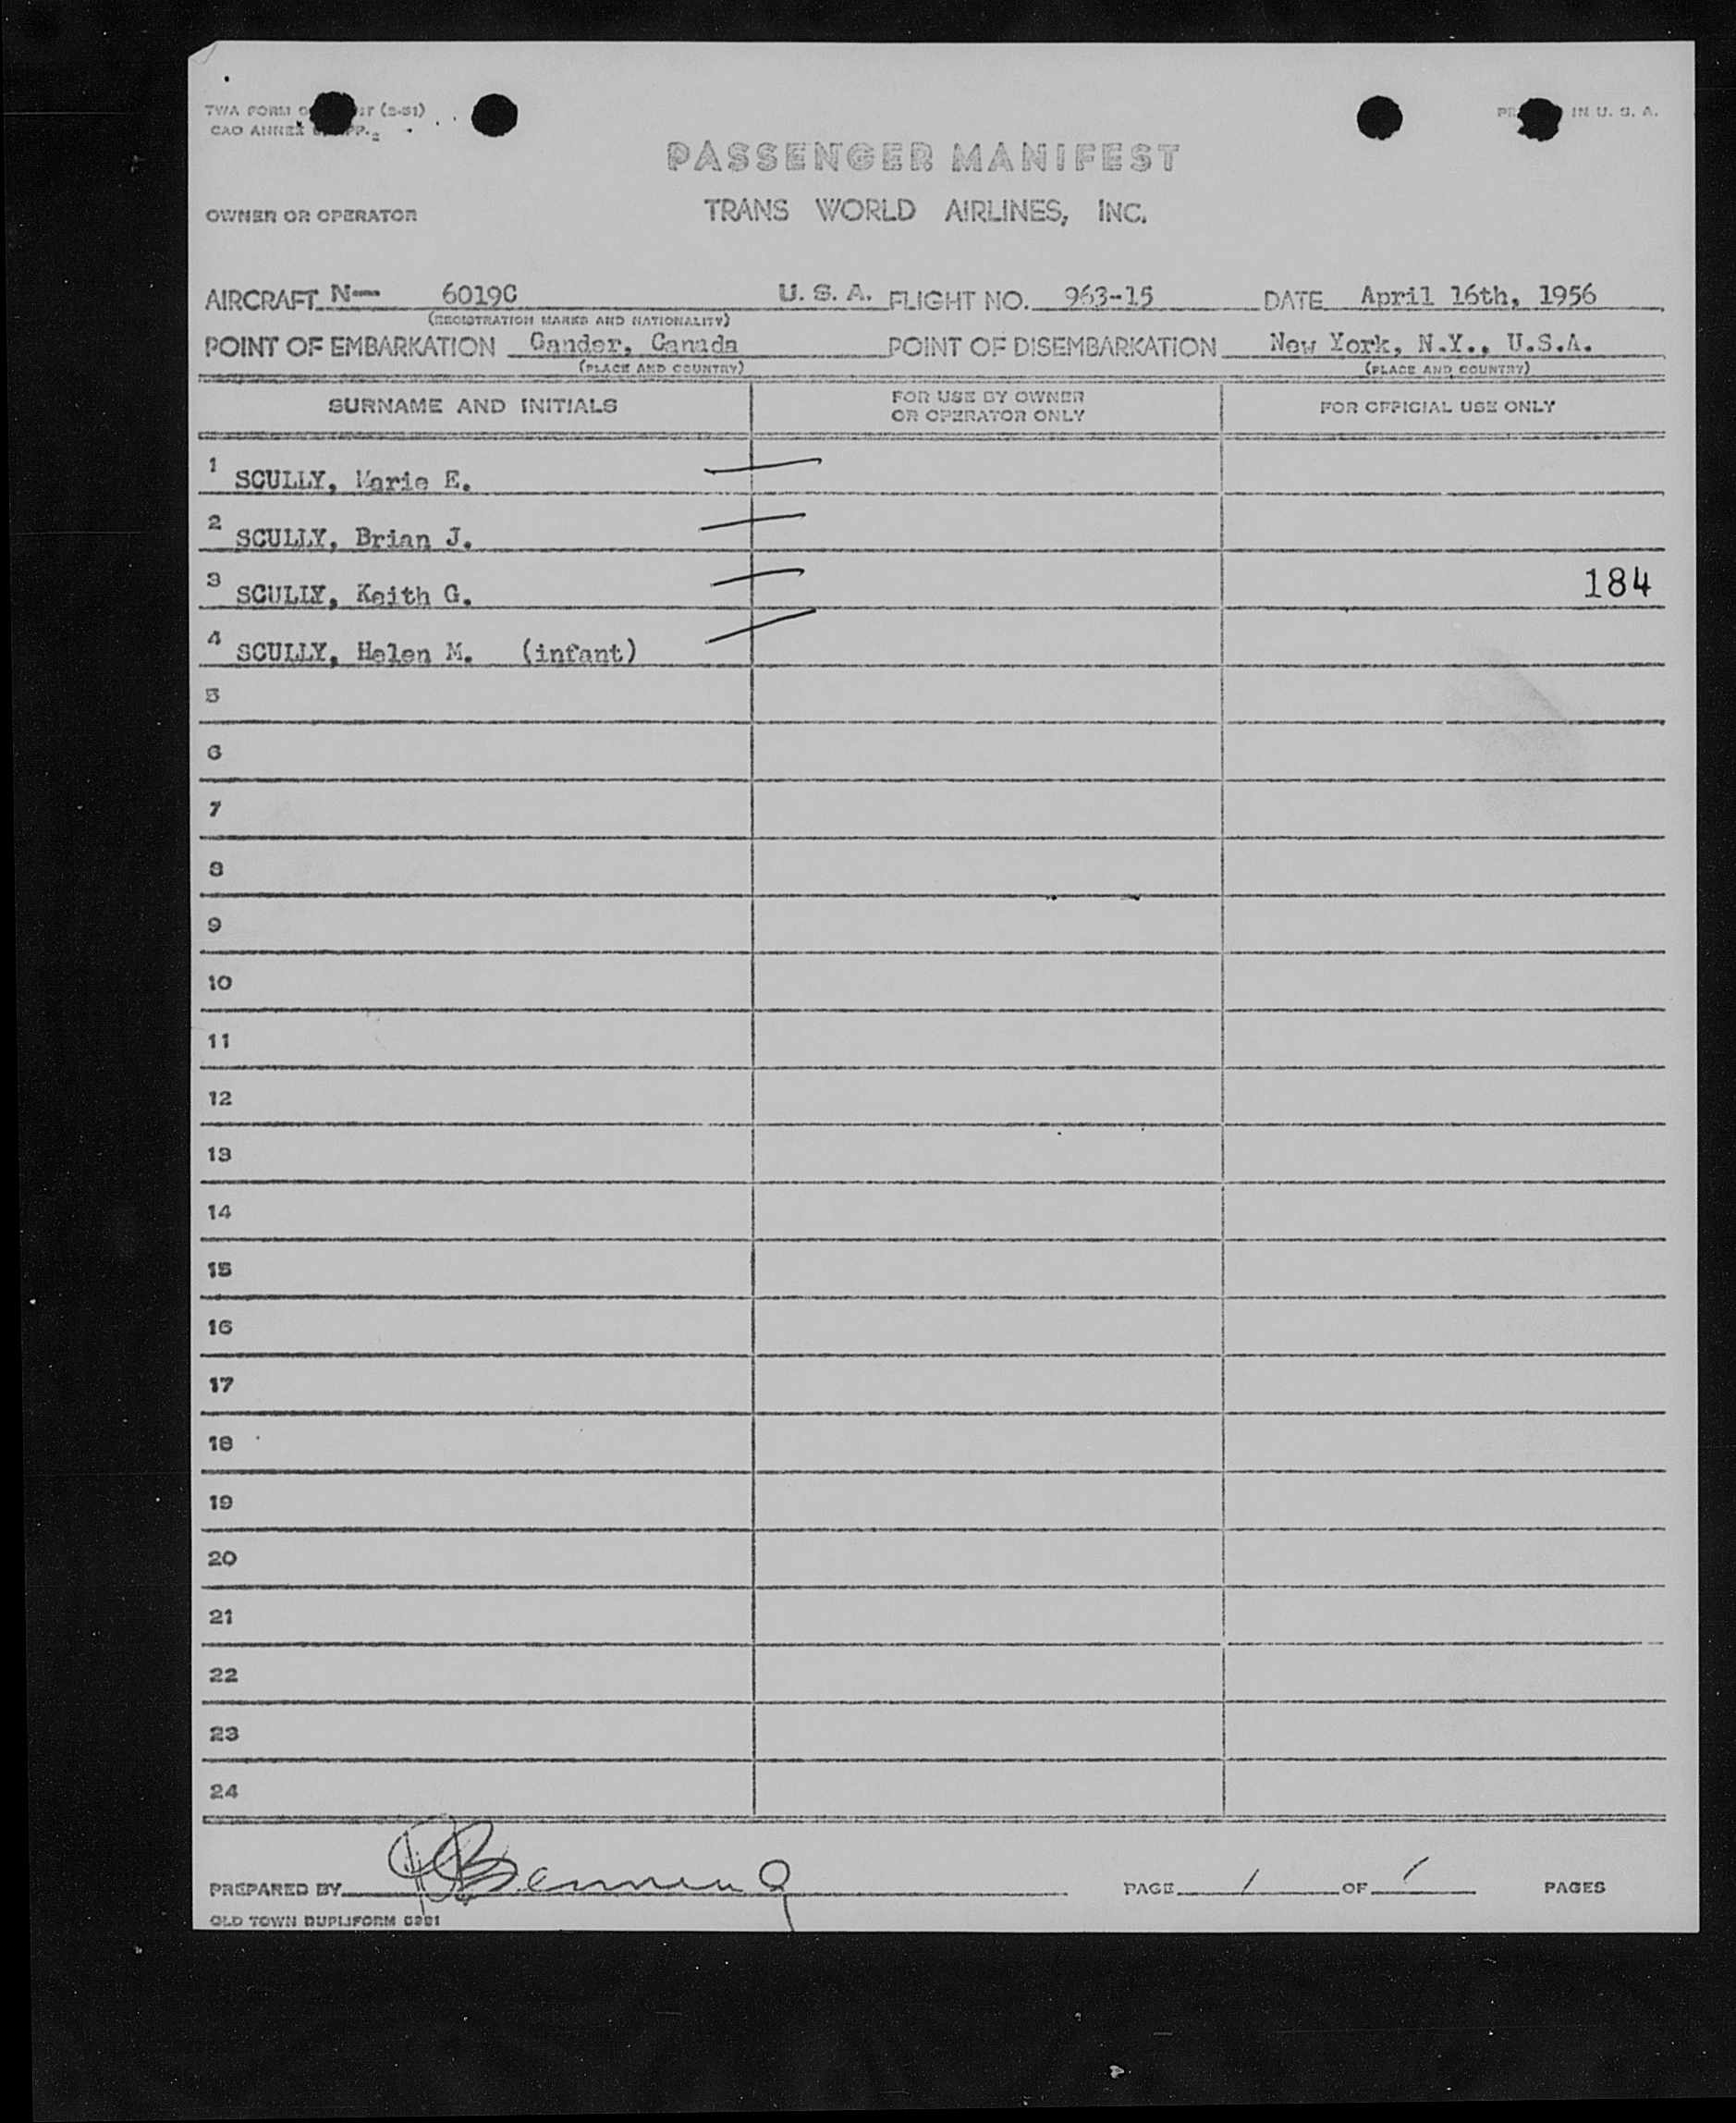 TWA FORM (2-51) IN U. S. A.
CAO ANNEX
PASSENGER MANIFEST
OWNER OR OPERATOR TRANS WORLD AIRLINES, INC.
AIRCRAFT N— 6019C U. S. A. FLIGHT NO. 963-15 DATE April 16th, 1956
(REGISTRATION MARKS AND NATIONALITY)
POINT OF EMBARKATION Gander, Canada POINT OF DISEMBARKATION New York, N.Y., U.S.A.
(PLACE AND COUNTRY) (PLACE AND COUNTRY)
SURNAME AND INITIALS FOR USE BY OWNER OR OPERATOR ONLY FOR OFFICIAL USE ONLY
1 SCULLY, Marie E.
2 SCULLY, Brian J.
3 SCULLY, Keith G. 184
4 SCULLY, Helen M. (infant)
5
6
7
8
9
10
11
12
13
14
15
16
17
18
19
20
21
22
23
24
PREPARED BY PAGE 1 OF 1 PAGES
OLD TOWN DUPLIFORM